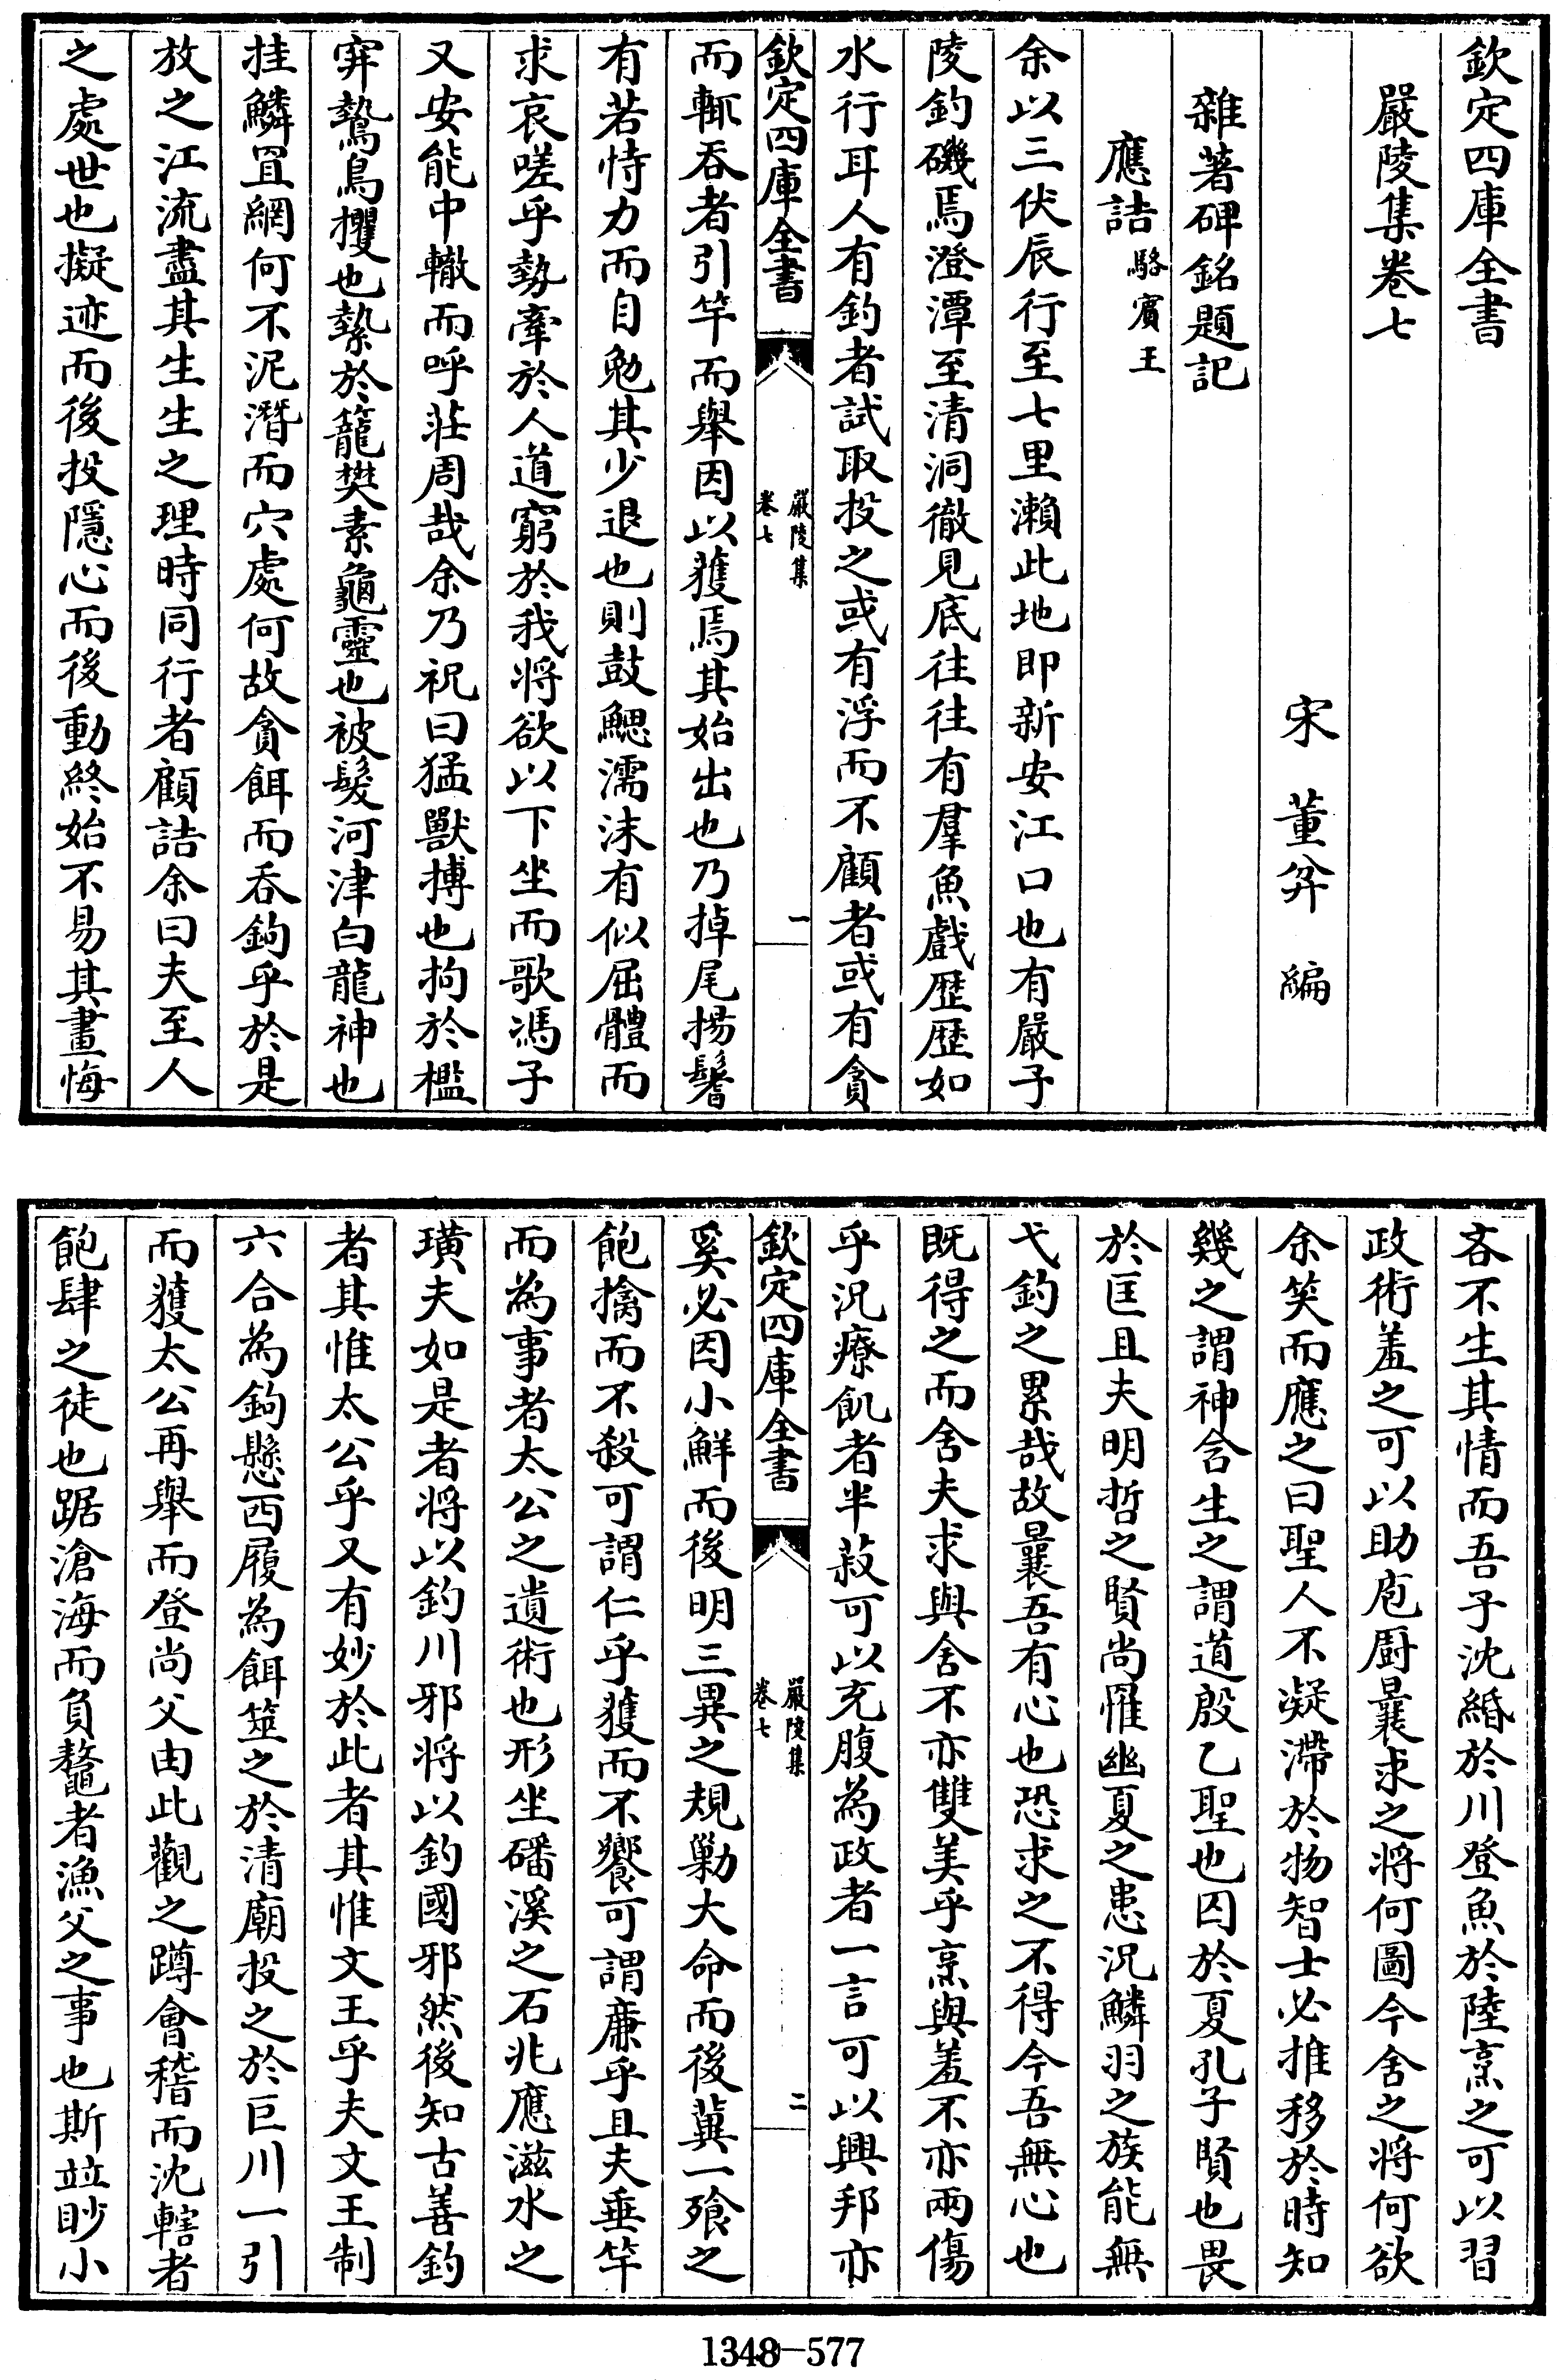 欽定四庫全書
嚴陵集卷七
宋 董弅 編
雜著碑銘題記
應詰駱賓王
余以三伏辰行至七里瀨此地即新安江口也有嚴子
陵釣磯焉澄潭至清洞徹見底往往有羣魚戲歴歴如
水行耳人有釣者試取投之或有浮而不顧者或有貪
欽定四庫全書
嚴陵集
卷七
一
而輒吞者引竿而舉因以獲焉其始出也乃掉尾揚鬐
有若恃力而自勉其少退也則鼓鰓濡沫有似屈體而
求哀嗟乎勢牽於人道窮於我將欲以下坐而歌馮子
又安能中轍而呼莊周哉余乃祝曰猛獸搏也拘於檻
穽鷙鳥攫也縶於籠樊素龜靈也被髮河津白龍神也
挂鱗罝網何不泥潛而穴處何故貪餌而吞鉤乎於是
放之江流盡其生生之理時同行者顧詰余曰夫至人
之處世也擬迹而後投隱心而後動終始不易其晝悔
吝不生其情而吾子沈緡於川登魚於陸烹之可以習
政術羞之可以助庖厨曩求之將何圖今舍之將何欲
余笑而應之曰聖人不凝滯於物智士必推移於時知
幾之謂神含生之謂道殷乙聖也囚於夏孔子賢也畏
於匡且夫明哲之賢尚罹幽夏之患况鱗羽之族能無
弋釣之累哉故曩吾有心也恐求之不得今吾無心也
既得之而舍夫求與舍不亦雙美乎烹與羞不亦兩傷
乎況療飢者半菽可以充腹為政者一言可以興邦亦
欽定四庫全書
嚴陵集
卷七
二
奚必因小鮮而後明三異之規勦大命而後冀一飱之
飽擒而不殺可謂仁乎獲而不饗可謂廉乎且夫垂竿
而為事者太公之遺術也形坐磻溪之石兆應滋水之
璜夫如是者將以釣川邪將以釣國邪然後知古善釣
者其惟太公乎又有妙於此者其惟文王乎夫文王制
六合為鉤懸西履為餌筮之於清廟投之於巨川一引
而獲太公再舉而登尚父由此觀之蹲會稽而沈轄者
飽肆之徒也踞滄海而負鼇者漁父之事也斯竝眇小
1348—577